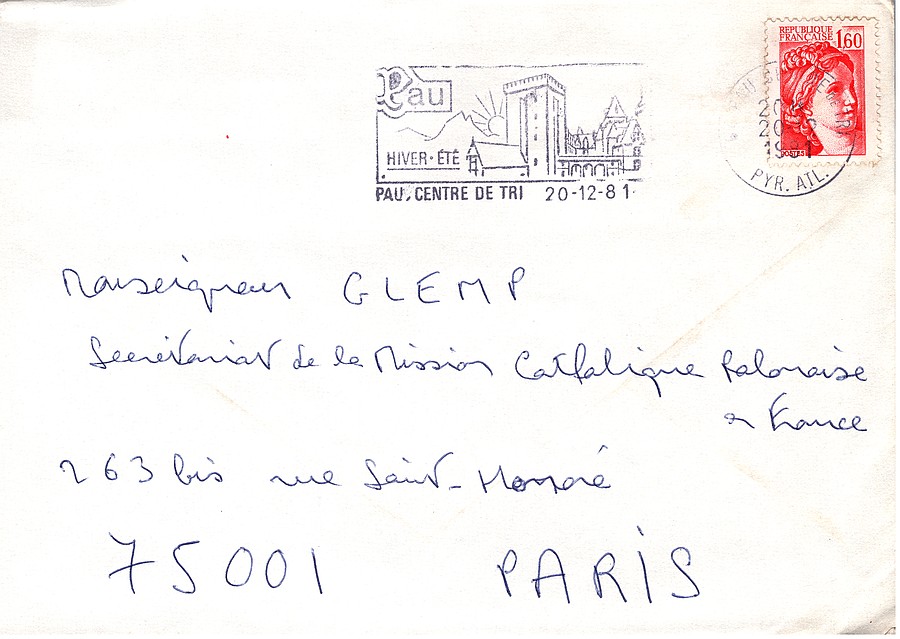 Pau
HIVER·ÉTÉ
PAU, CENTRE DE TRI 20-12-81
REPUBLIQUE
FRANÇAISE 1,60
POSTES
20
PYR. ATL.
Monseigneur GLEMP
Secrétariat de la Mission Catholique Polonaise
en France
263 bis rue Saint-Honoré
75001 PARIS